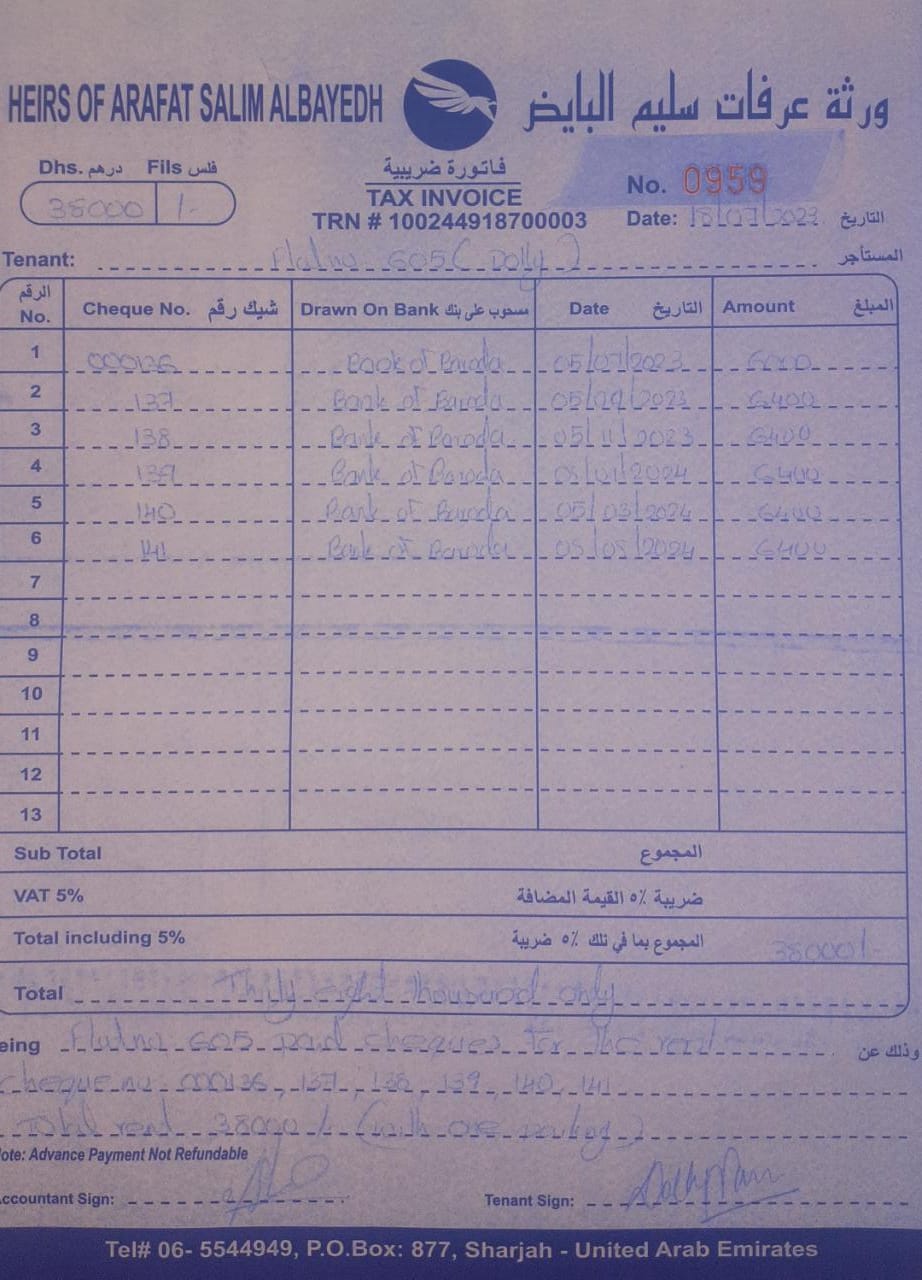 HEIRS OF ARAFAT SALIM ALBAYEDH ورثة عرفات سليم البايض
Dhs. درهم Fils فلس
38000 /-
فاتورة ضريبية
TAX INVOICE
TRN # 100244918700003
No. 0959
Date: 18/07/2023 التاريخ
Tenant: Flatno 605 (Dolly) المستأجر
الرقم No. Cheque No. شيك رقم Drawn On Bank مسحوب على بنك Date التاريخ Amount المبلغ
1 000136 Book of Baroda 05/07/2023 6000
2 137 Bank of Baroda 05/09/2023 6400
3 138 Bank of Baroda 05/11/2023 6400
4 139 Bank of Baroda 05/01/2024 6400
5 140 Bank of Baroda 05/03/2024 6400
6 141 Bank of Baroda 05/05/2024 6400
7
8
9
10
11
12
13
Sub Total المجموع
VAT 5% ضريبة ٥٪ القيمة المضافة
Total including 5% المجموع بما في تلك ٥٪ ضريبة 38000/-
Total Thirty eight thousand only
eing Flatno 605 paid cheques for the rent وذلك عن
cheque no 000136, 137, 138, 139, 140, 141
Total rent 38000/- (with one parking)
ote: Advance Payment Not Refundable
ccountant Sign: Tenant Sign:
Tel# 06- 5544949, P.O.Box: 877, Sharjah - United Arab Emirates